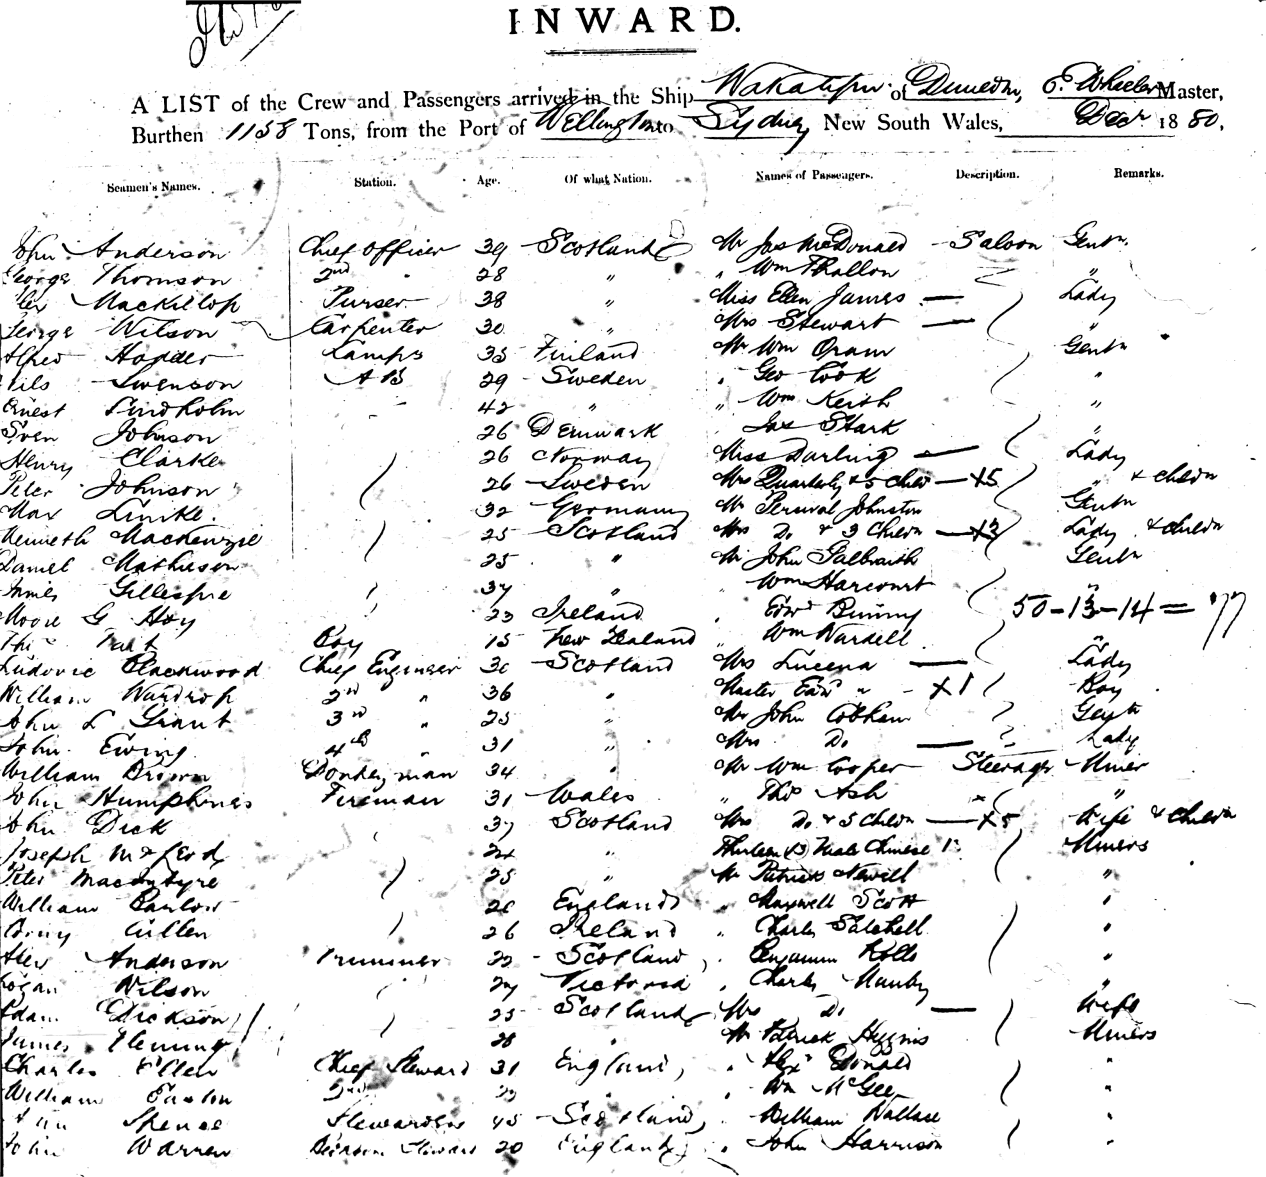 INWARD.
A LIST of the Crew and Passengers arrived in the Ship Wakatipu of Dunedin, E. Wheeler Master,
Burthen 1158 Tons, from the Port of Wellington to Sydney New South Wales, Decr 1880,
Seamen's Names. Station. Age. Of what Nation. Names of Passengers. Description. Remarks.
John Anderson Chief Officer 39 Scotland Mr Jas McDonald Saloon Gentn
George Thomson 2nd " 28 " " Wm Thallon "
Alex Mackillop Purser 38 " Miss Ellen James — Lady
George Wilson Carpenter 30 " Mrs Stewart — "
Alfred Hopder Lamps 35 Finland Mr Wm Oram Gentn
Nils Swenson AB 29 Sweden " Geo Cook "
Ernest Lindholm 42 " " Wm Keith "
Sven Johnson 26 Denmark Jas Stark "
Henry Clarke 26 Norway Miss Darling — Lady
Peter Johnson 26 Sweden Mrs Quarterly & 5 Chdn — X5 " & chdn
Max Lincke 32 Germany Mr Percival Johnston Gentn
Kenneth Mackenzie 25 Scotland Mrs Do & 3 Childn — X3 Lady & childn
Daniel Mathieson 25 " Mr John Galbraith Gentn
James Gillespie 34 " " Wm Harcourt "
Moore G Hoy 23 Ireland " Edwd Binny 50-13-14 = 77
Boy 15 New Zealand " Wm Wardell "
Ludovic Blackwood Chief Engineer 30 Scotland Mrs Lucena — Lady
William Wardrop 2nd " 36 " Master Edwd " - X1 Boy
John L Grant 3rd " 25 " Mr John Cobham Gentn
John Ewing 4th " 31 " Mrs Do — Lady
William Brown Donkeyman 34 " Mr Wm Cooper Steerage Miner
John Humphries Fireman 31 Wales " Thos Ash "
John Dick 37 Scotland Mrs Do & 5 Childn — X5 Wife & Childn
Joseph McLeod 24 " Thirteen 13 Male Chinese Miners
Peter Macintyre 25 " Mr Patrick Nevill "
William Barlow 26 England " Maxwell Scott "
Cullen 26 Ireland " Charles Satchell "
Alex Anderson Trimmer 22 Scotland " Benjamin Rolls "
Logan Wilson 24 Victoria " Charles Manby "
Adam Dickson 25 Scotland Mrs Do — Wife
James Fleming 28 " Mr Patrick Higgins Miners
Charles Ellen Chief Steward 31 England " Alexr Donald "
William Easton 2nd " " Wm McGee "
Spence Stewardess 45 Scotland " William Wallace "
John Warren Steward 20 England " John Harrison "